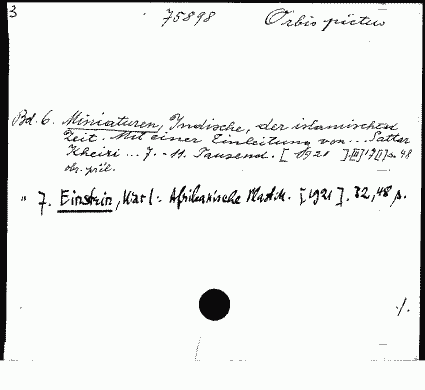 3
75898 Orbis pictus
Bd. 6. Miniaturen, Indische, der islamischen
Zeit. Mit einer Einleitung von ... Sattar
Kheiri ... 7.-11. Tausend. [1921] .III] 17 [1] s. 48
obr. příl.
" 7. Einstein, Karl: Afrikanische Plastik. [1921]. 32, 48 s.
./.